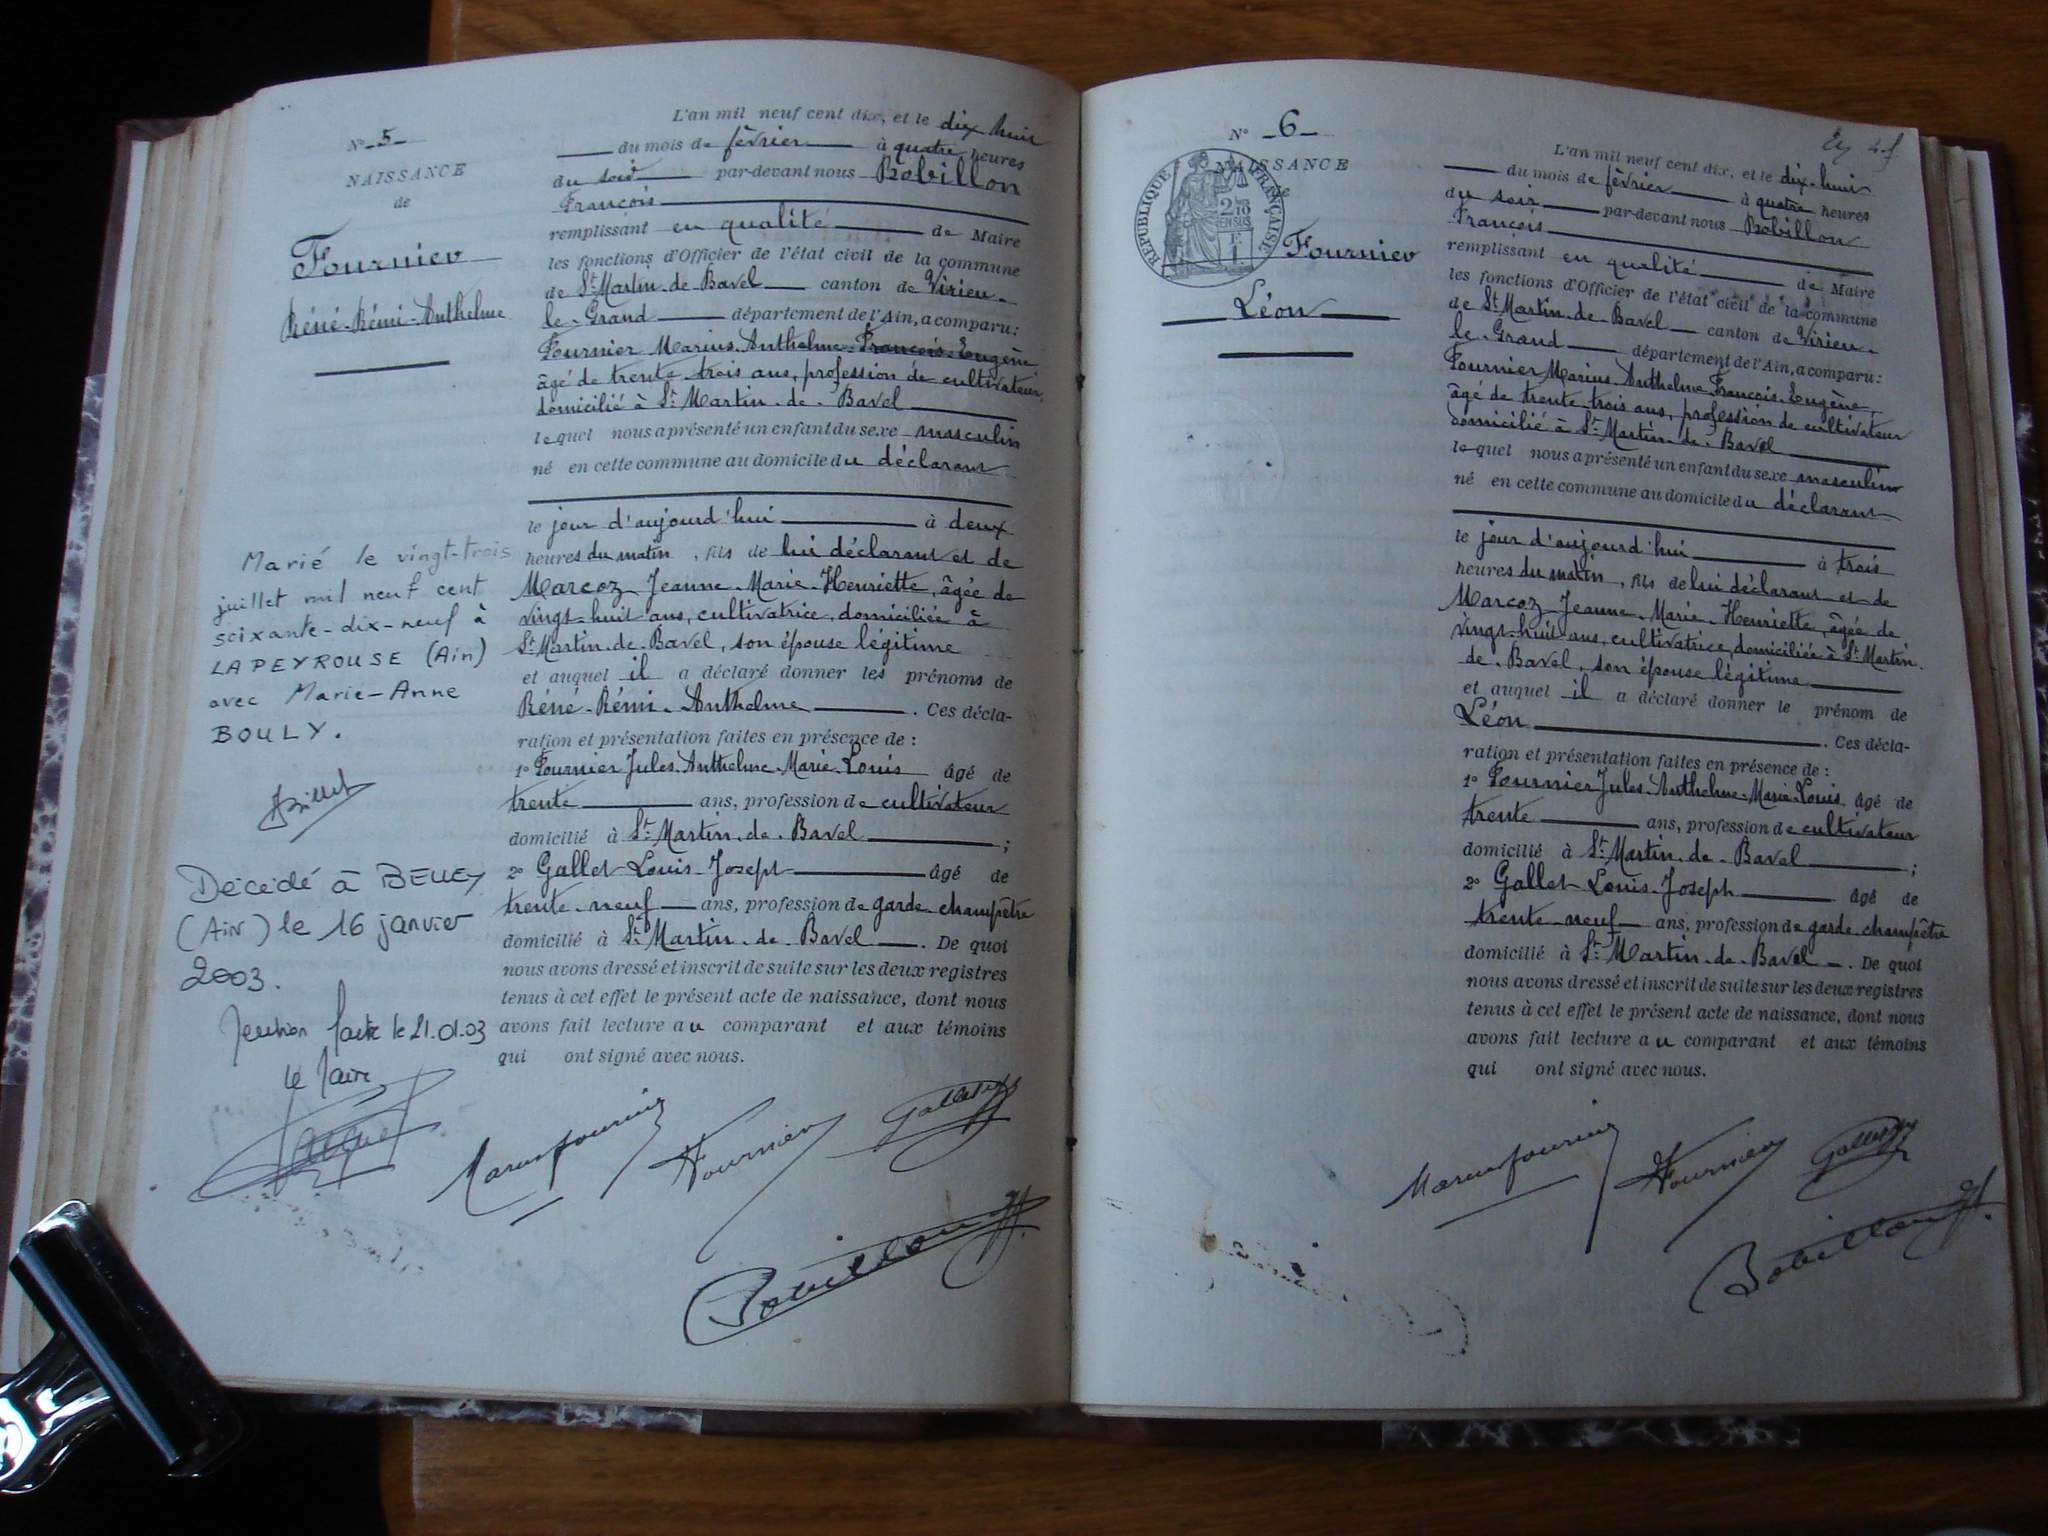 N° 5
NAISSANCE
de
Fournier
Réné-Rémi-Anthelme
Marié le vingt-trois
juillet mil neuf cent
soixante-dix-neuf à
LAPEYROUSE (Ain)
avec Marie-Anne
BOULY.
Décédé à BELLEY
(Ain) le 16 janvier
2003.
le 21.01.03
Le Maire
L'an mil neuf cent dix, et le dix huit
du mois de février à quatre heures
du soir par-devant nous Bobillon
François
remplissant en qualité de Maire
les fonctions d'Officier de l'état civil de la commune
de St Martin-de-Bavel canton de Virieu-
le-Grand département de l'Ain, a comparu:
Fournier Marius-Anthelme-François-Eugène
âgé de trente-trois ans, profession de cultivateur,
domicilié à St Martin-de-Bavel
lequel nous a présenté un enfant du sexe masculin
né en cette commune au domicile du déclarant
le jour d'aujourd'hui à deux
heures du matin, fils de lui déclarant et de
Marcoz Jeanne-Marie-Henriette, âgée de
vingt-huit ans, cultivatrice, domiciliée à
St Martin-de-Bavel, son épouse légitime
et auquel il a déclaré donner les prénoms de
Réné-Rémi-Anthelme. Ces décla-
ration et présentation faites en présence de :
1° Fournier Jules-Anthelme-Marie-Louis âgé de
trente ans, profession de cultivateur
domicilié à St Martin-de-Bavel ;
2° Gallet Louis-Joseph âgé de
trente-neuf ans, profession de garde-champêtre
domicilié à St Martin-de-Bavel. De quoi
nous avons dressé et inscrit de suite sur les deux registres
tenus à cet effet le présent acte de naissance, dont nous
avons fait lecture au comparant et aux témoins
qui ont signé avec nous.
Marius Fournier Fournier Gallet
Bobillon
N° 6
NAISSANCE
de
RÉPUBLIQUE FRANÇAISE
Fournier
Léon
L'an mil neuf cent dix, et le dix-huit
du mois de février à quatre heures
du soir par-devant nous Bobillon
François
remplissant en qualité de Maire
les fonctions d'Officier de l'état civil de la commune
de St Martin-de-Bavel canton de Virieu-
le-Grand département de l'Ain, a comparu:
Fournier Marius-Anthelme-François-Eugène,
âgé de trente-trois ans, profession de cultivateur
domicilié à St Martin-de-Bavel
lequel nous a présenté un enfant du sexe masculin
né en cette commune au domicile du déclarant
le jour d'aujourd'hui à trois
heures du matin, fils de lui déclarant et de
Marcoz Jeanne-Marie-Henriette, âgée de
vingt-huit ans, cultivatrice, domiciliée à St Martin-
de-Bavel, son épouse légitime
et auquel il a déclaré donner le prénom de
Léon. Ces décla-
ration et présentation faites en présence de :
1° Fournier Jules-Anthelme-Marie-Louis âgé de
trente ans, profession de cultivateur
domicilié à St Martin-de-Bavel ;
2° Gallet Louis-Joseph âgé de
trente-neuf ans, profession de garde-champêtre
domicilié à St Martin-de-Bavel. De quoi
nous avons dressé et inscrit de suite sur les deux registres
tenus à cet effet le présent acte de naissance, dont nous
avons fait lecture au comparant et aux témoins
qui ont signé avec nous.
Marius Fournier Fournier Gallet
Bobillon